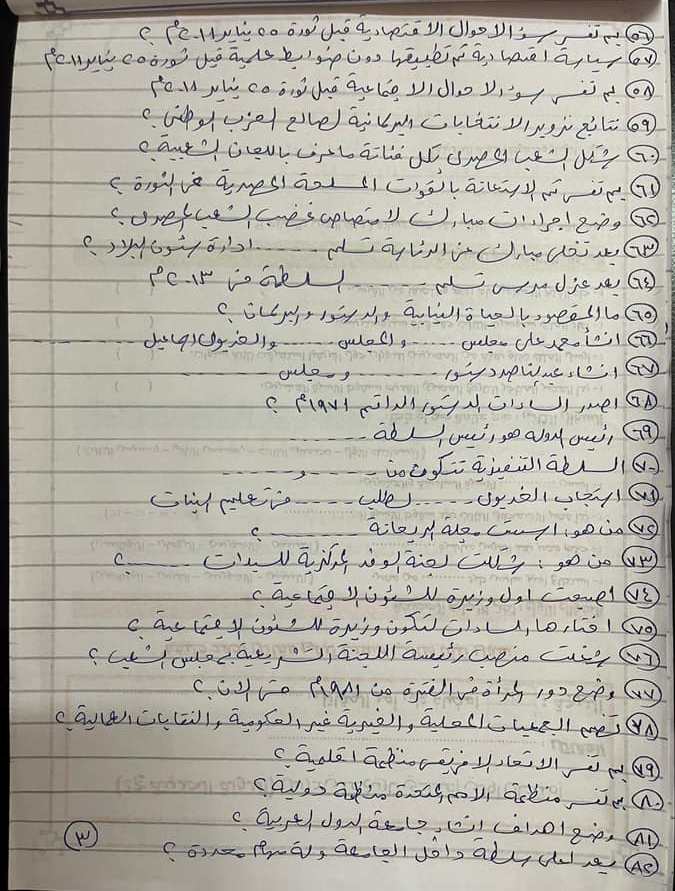 ٥٦) بم تفسر سوء الاحوال الاقتصادية قبل ثورة ٢٥ يناير ٢٠١١م ؟
٥٧) سياسة اقتصادية تم تطبيقها دون ضوابط علمية قبل ثورة ٢٥ يناير ٢٠١١م
٥٨) بم تفسر سوء الاحوال الاجتماعية قبل ثورة ٢٥ يناير ٢٠١١م
٥٩) نتائج تزوير الانتخابات البرلمانية لصالح الحزب الوطني ؟
٦٠) شكل الشعب المصري بكل فئاته ما عرف باللجان الشعبية ؟
٦١) بم تفسر تم الاستعانة بالقوات المسلحة المصرية في الثورة ؟
٦٢) وضح اجراءات مبارك لامتصاص غضب الشعب المصري ؟
٦٣) بعد تخلى مبارك عن الرئاسة تسلم ...... ادارة شئون البلاد ؟
٦٤) بعد عزل مرسي تسلم ...... السلطة في ٢٠١٣م
٦٥) ما المقصود بالحياة النيابية والدستور والبرلمان ؟
٦٦) انشأ محمد على مجلس ...... والمجلس ...... والخديوى اسماعيل ......
٦٧) انشاء عبد الناصر دستور ...... ومجلس ......
٦٨) اصدر السادات الدستور الدائم ١٩٧١م ؟
٦٩) رئيس الدولة هو رئيس السلطة ......
٧٠) السلطة التنفيذية تتكون من ...... و ......
٧١) استجاب الخديوى ...... لطلب ...... في تعليم البنات
٧٢) من هو : اسست مجلة الريحانة ...... ؟
٧٣) من هو : شكلت لجنة الوفد المركزية للسيدات ...... ؟
٧٤) اصبحت اول وزيرة للشئون الاجتماعية ؟
٧٥) اختارها السادات لتكون وزيرة للشئون الاجتماعية ؟
٧٦) شغلت منصب رئيسة اللجنة التشريعية بمجلس الشعب ؟
٧٧) وضح دور المرأة في الفترة من ١٩٨١م حتى الان ؟
٧٨) تضم الجمعيات المحلية والخيرية غير الحكومية والنقابات العمالية ؟
٧٩) بم تفسر الاتحاد الافريقي منظمة اقليمية ؟
٨٠) بم تفسر منظمة الامم المتحدة منظمة دولية ؟
٨١) وضح اهداف انشاء جامعة الدول العربية ؟
٨٢) يعد اعلى سلطة داخل الجامعة وله مهام محددة ؟
٣